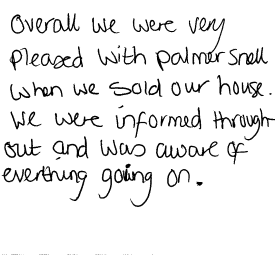 Overall we were very
pleased with palmer snell
when we sold our house.
We were informed through
out and was aware of
everthing going on.